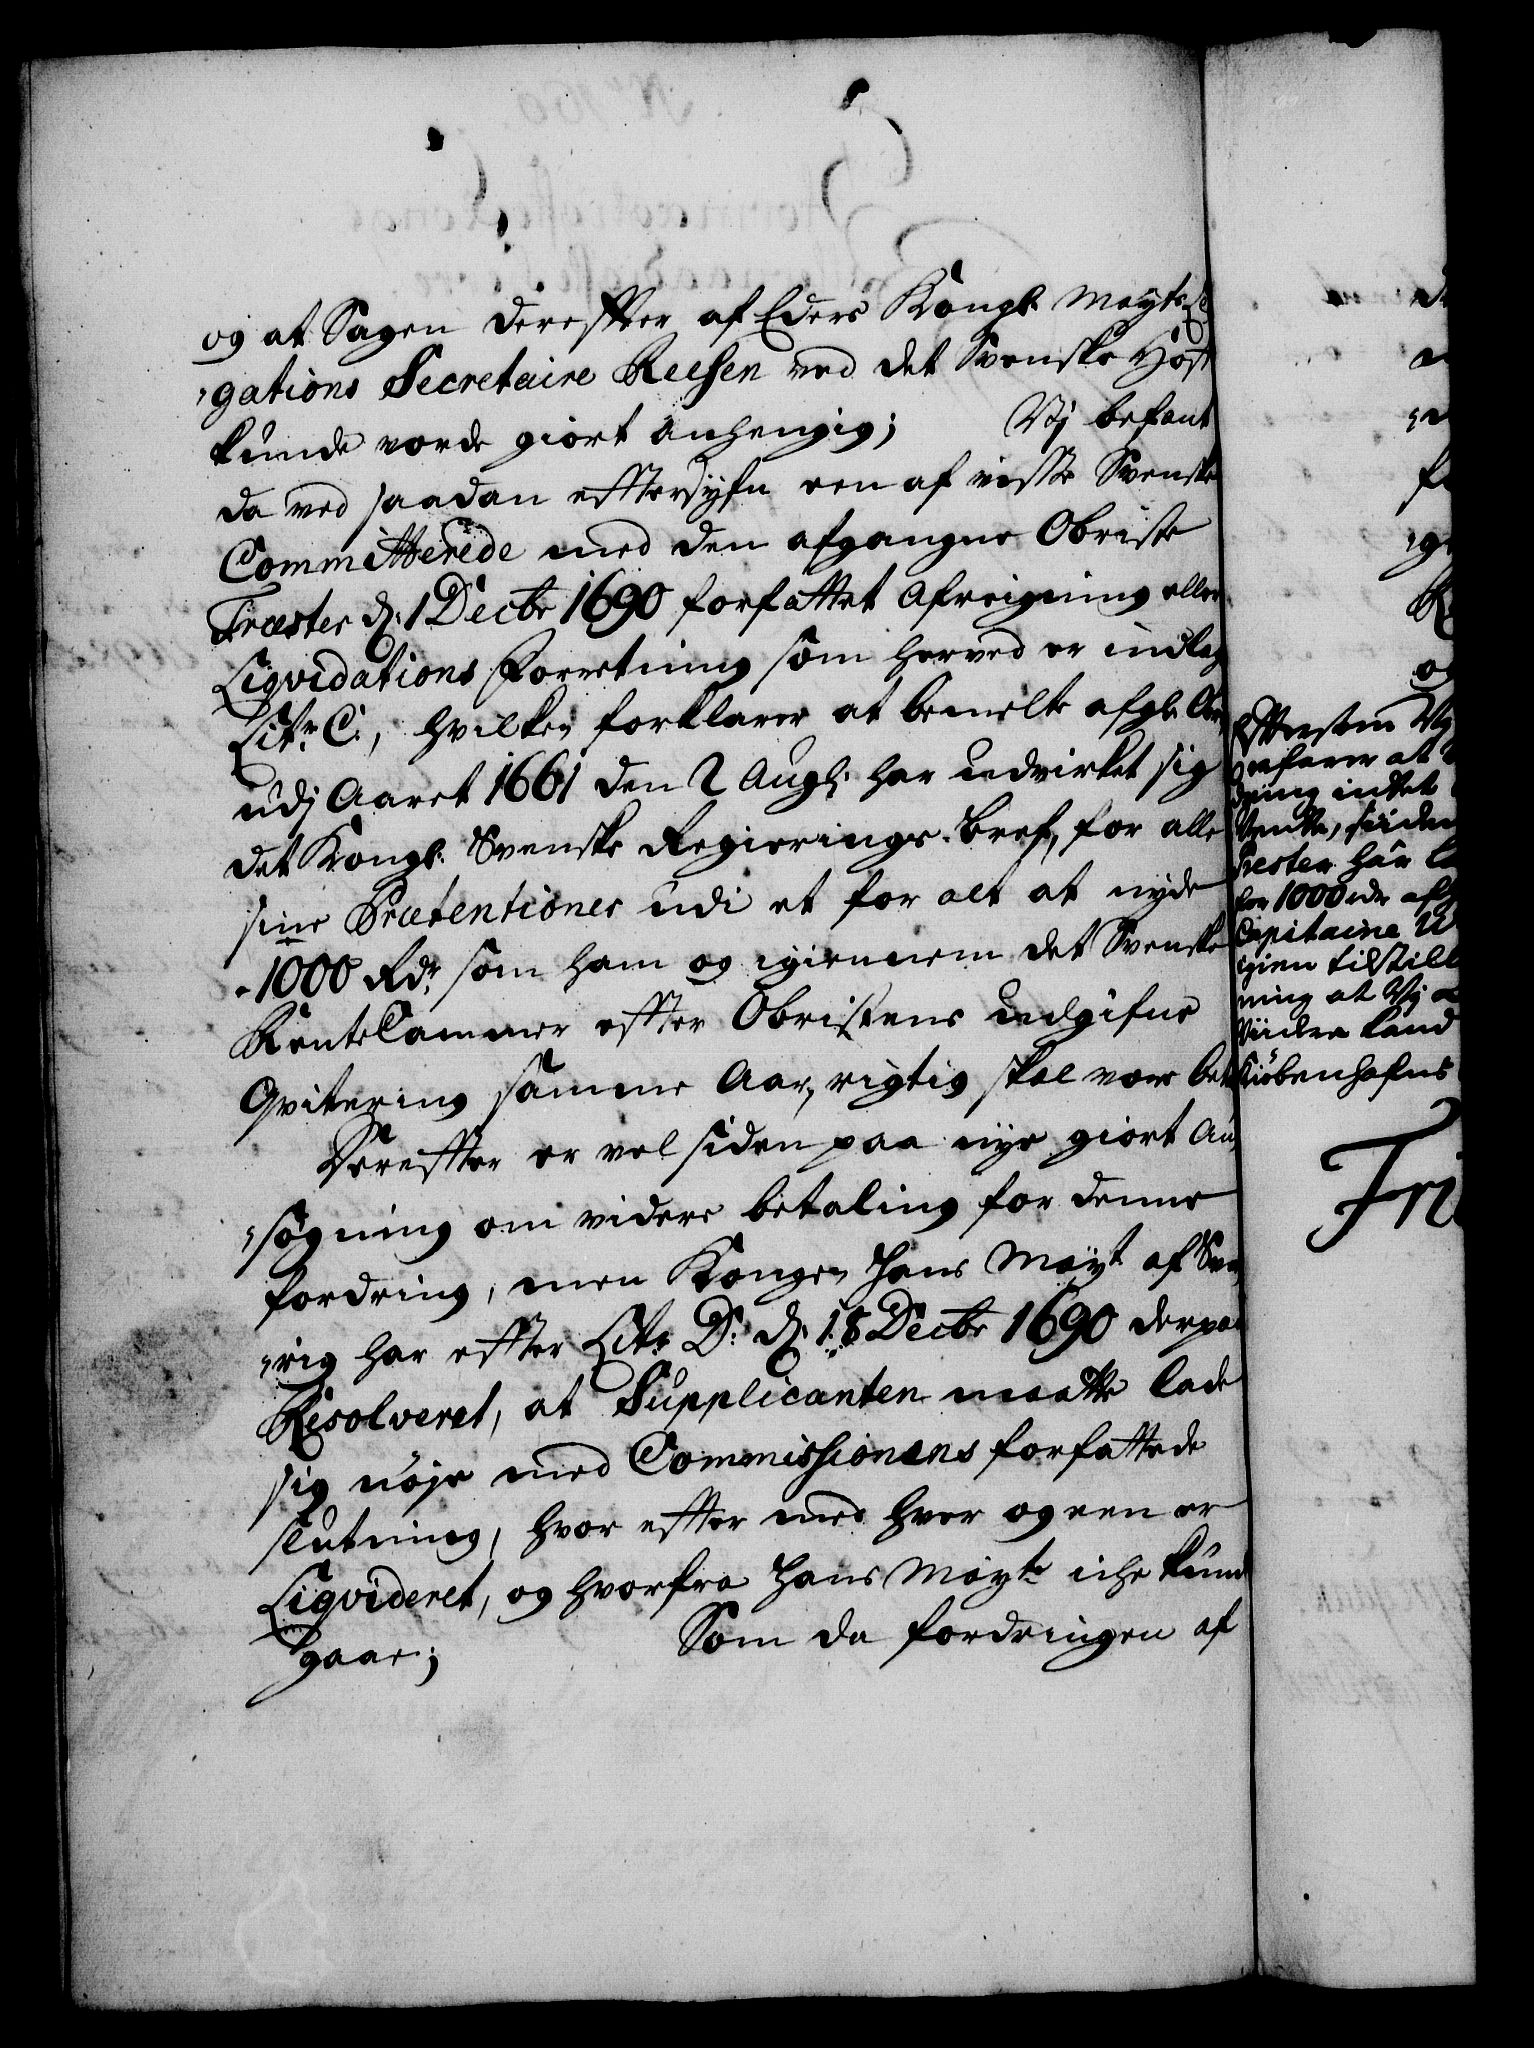 og at Sagen derefter af Eders Kongl. Mayts. Le
„gations Secretaire Reesen ved det Svenske Hoff
kunde vorde giort anhengig; Vj befant
da ved saadan efftersyfn een af visse Svenske
Committerede med den afgangne Obriste
Træster d. 1 Decbr 1690 forfattet Afreigning eller
Liqvidations Forretning som herved er indlagt
Litr. C:, hvilken forklarer at bemelte afgl. Obr.
udj Aaret 1661 den 2 Augs. har udvirket sig
det Kongl. Svenske Regierings bref, for alle
sine Prætentioner udi et for alt at nyde
1000 Rdr. som ham og igiennem det Svenske
RenteCammer effter Obristens udgifne
Qvitering samme Aar, rigtig skal være bet
Dereffter er vel siden paa nye giort An
„søgning om videre betaling for denne
fordring, men Kongen Hans Mayt af Sve
„rig har effter Litr. D: d. 18 Decbr 1690 derpaa
Resolveret, at Supplicanten maatte lade
sig nøje med Commissionens forfattede
slutning, hvor effter med hver og een er
Liqvideret, og hvorfra Hans Mayt iche kunde
gaae; Som da fordringen af
Efftersom Vj
erfarer at
dring intet
Vente, siiden
Trester har
for 1000 rdr afh
Capitaine
igien tilstill
ning at Vj
Viiden kand
Kiøbenhafns
Fri